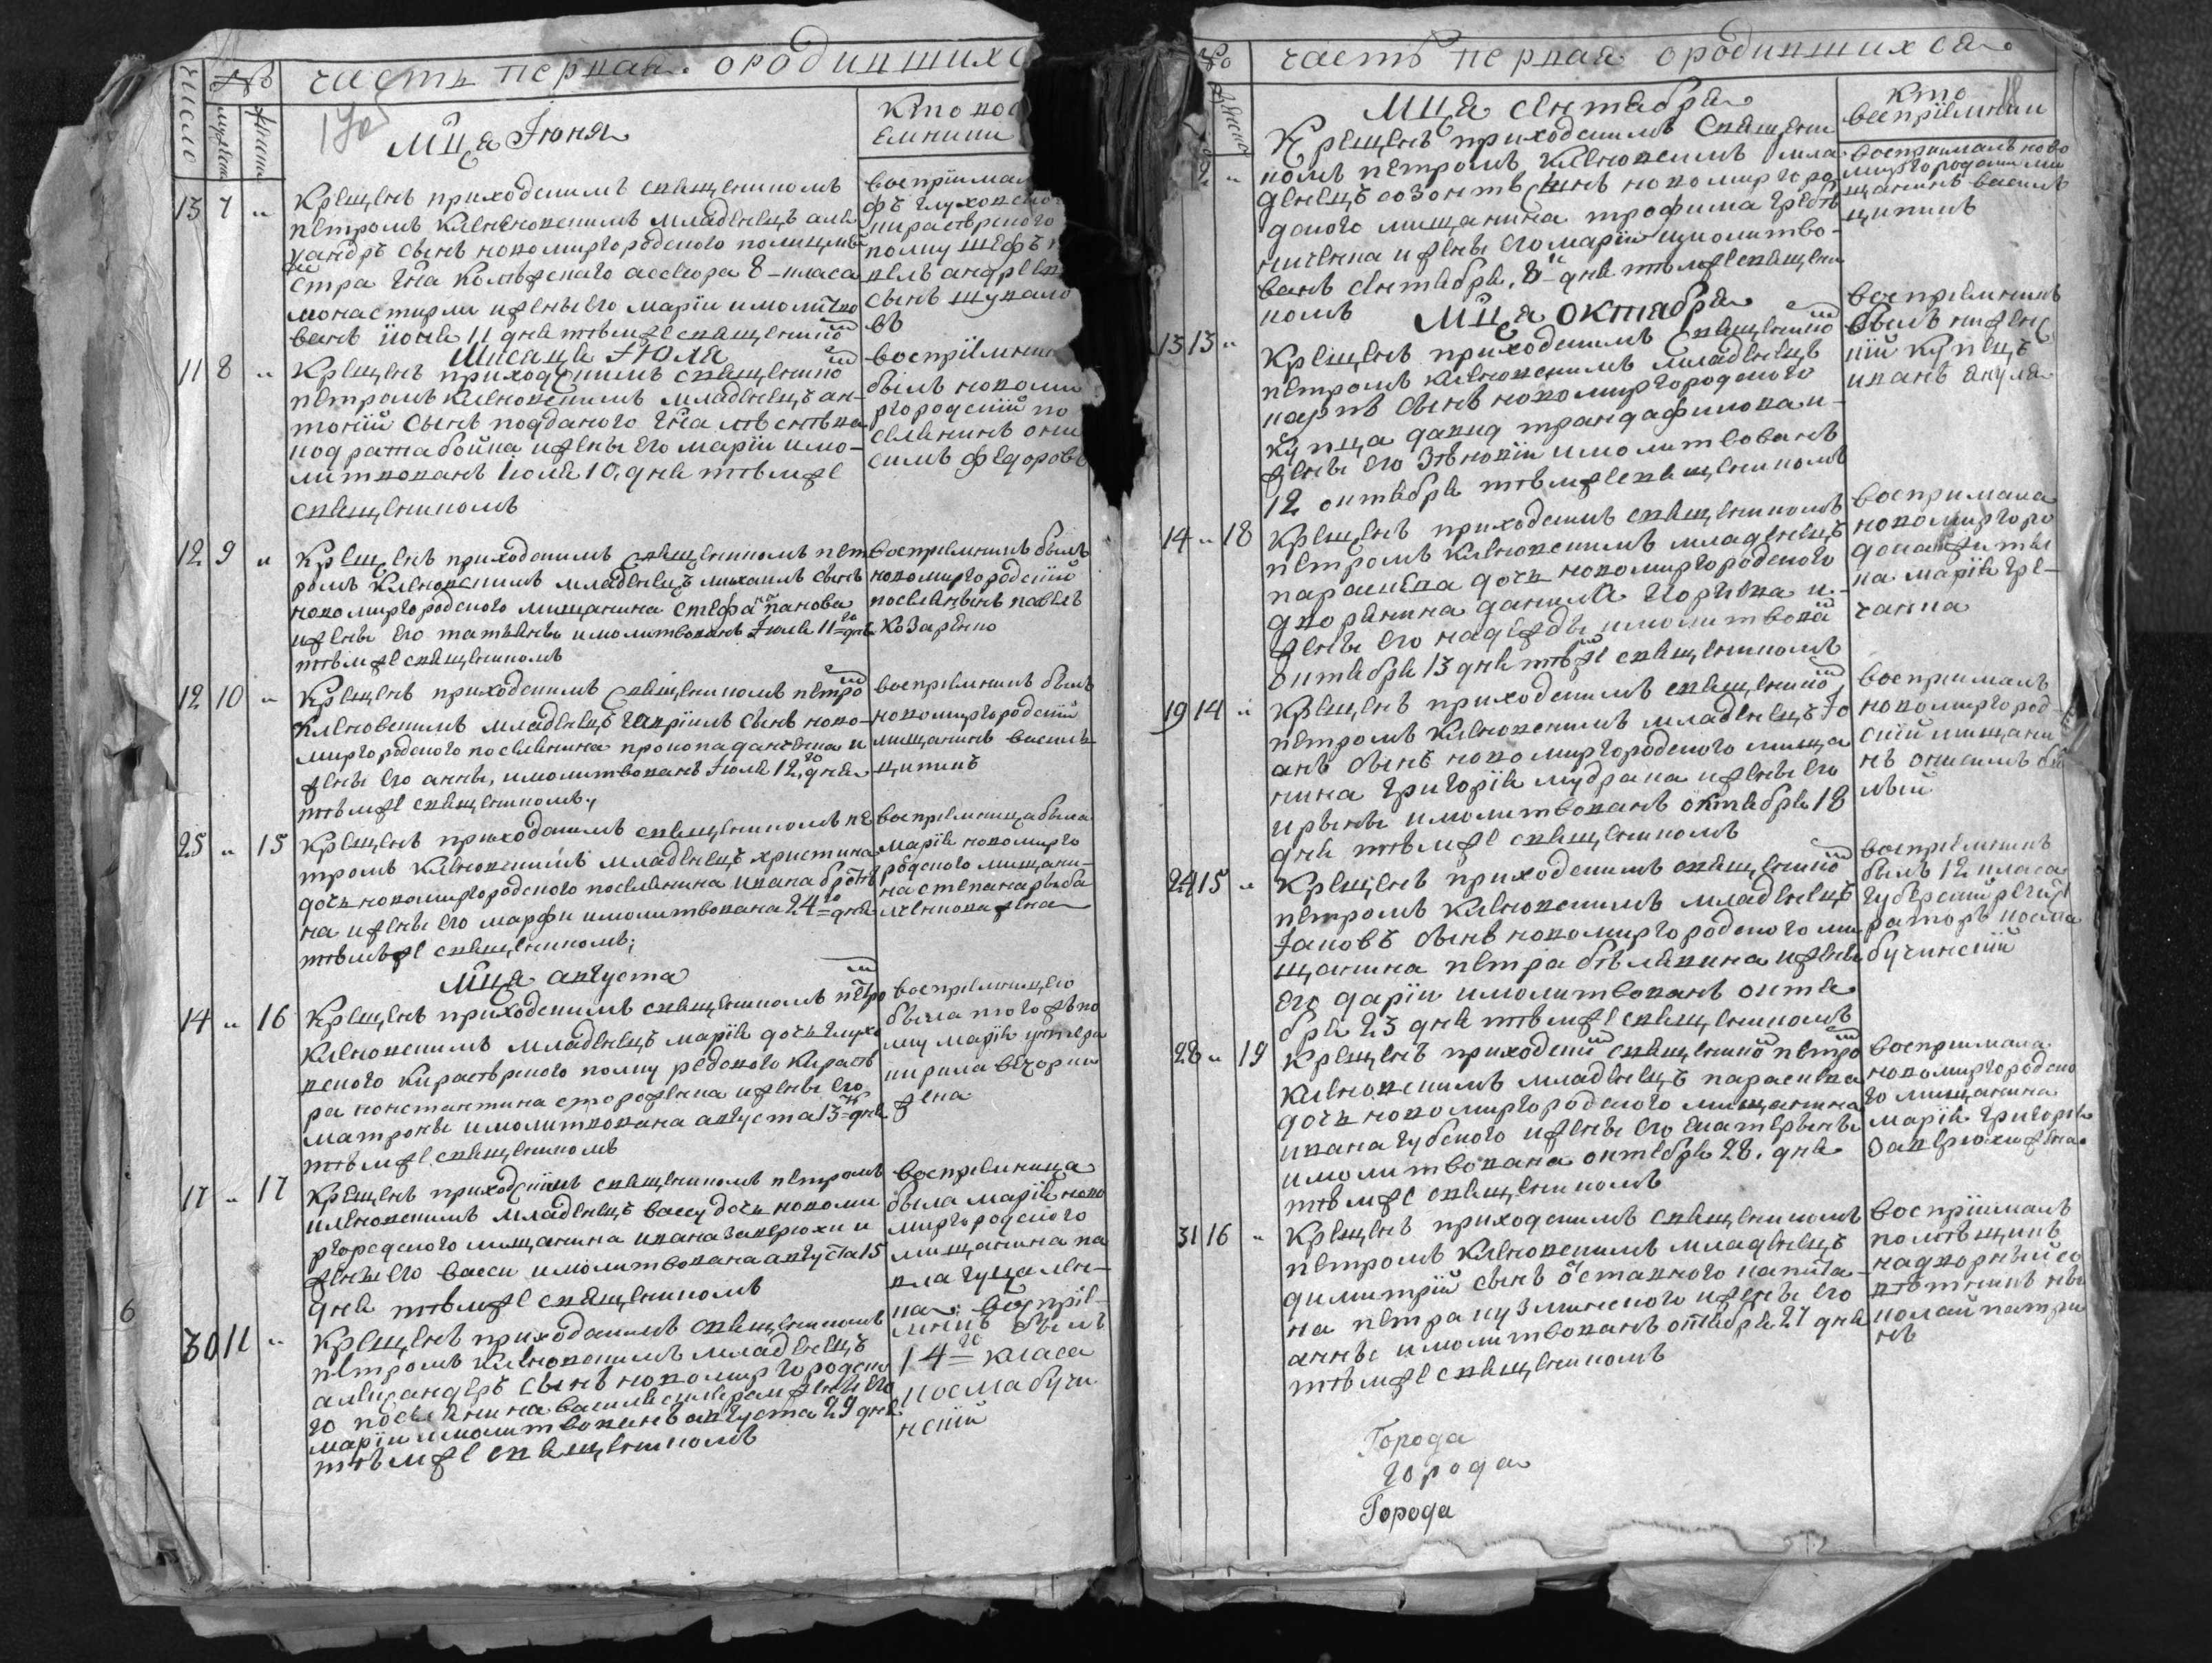 часть первая ородившихс
число
№
мужеска
женска
Мца Июня
Кто вос
емники
13 7 " Крещенъ приходскимъ священникомъ
петромъ Клѣновскимъ младенецъ але
ксандръ сынъ новомиргородского
стра Гна Колежского асесора 8-класа
монастирли и жены его марїи и молитво
ванъ июня 11 дня тѣмже священнико
воспрїимал
фъ глуховско
кирасѣрского
полку
андрѣев
сынъ
въ
Мисяца Июля
11 8 " Крещенъ приходскимъ священнико
петромъ Клѣновскимъ младенецъ ан-
тонїй сынъ подданого Гна
и жены его марїи и мо-
литвованъ Июля 10, дня тѣмже
священникомъ
воспрїемник
былъ новоми
ргородскїй по
селянинъ они
симъ федоровъ
12 9 " Крещенъ приходскимъ священникомъ пет
ромъ Клѣновскимъ младенецъ михаилъ сынъ
новомиргородского мищанина стефана панова
и жены его татьяны и молитвованъ Июля 11=го дня
тѣмже священникомъ
воспрїемникъ былъ
новомиргородскїй
поселянинъ павелъ
Козаренко
12 10 " Крещенъ приходскимъ священникомъ петро
Клѣновскимъ младенецъ Гаврїилъ сынъ ново-
миргородского поселянина прокопа данченка и
жены его анны, и молитвованъ Июля 12,го дня
тѣмже священникомъ.,
воспрїемникъ былъ
новомиргородскїй
мищанинъ василь
ципикъ
25 " 15 Крещенъ приходскимъ священникомъ пе
тромъ Клѣновскимъ младенецъ христина
дочь новомиргородского поселянина ивана
на и жены его марфи и молитвована 24=го дня
тѣмже священникомъ;
воспрїемница была
марїя новомирго
родского мищани-
на степана рыба
лченкова жена
Мца августа
14 " 16 Крещенъ приходскимъ священникомъ петро
Клѣновскимъ младенецъ марїя дочь глухо
вского Кирасѣрского полку рядового Кирасѣ
ра константина сторожена и жены его
матроны и молитвована августа 13=го дня
тѣмже священникомъ
воспрїемницею
была тогожъ по
лку марїя
кирила
жена
17 " 17 Крещенъ приходскимъ священникомъ петромъ
клѣновскимъ младенецъ вассу дочь новоми
ргородского мищанина ивана заверюхи и
жены его васси и молитвована августа 15
дня тѣмже священникомъ
воспрїемница
была марїя ново
миргородского
мищанина па
вла гуцален-
ка:
30 11 " Крещенъ приходскимъ священникомъ
петромъ Клѣновскимъ младенецъ
александеръ сынъ новомиргородско
го поселянина василя и жены его
марїи и молитвованъ августа 29 дня
тѣмже священникомъ
воспрїе-
мникъ былъ
14=го класа
косма бучи
нскїй
6
№
часть первая ородившихся.
женска
Мца сентября
Кто
воспрїемники
Крещенъ приходскимъ священни
комъ петромъ Клѣновскимъ мла
денецъ созонтъ сынъ новомиргоро
дского мищанина трофима
и жены его марїи и молитво-
ванъ сентября, 8 дня тѣмже священни
комъ
воспрималъ ново
миргородски ми
щанинъ василь
ципикъ
Мца октября
13 13 " Крещенъ приходскимъ священнико
петромъ Клѣновскимъ младенецъ
карпъ сынъ новомиргородского
купца давид трандафилова и
жены его и молитвованъ
12 октября тѣмже священникомъ
воспрїемникъ
былъ нижен
нїй купецъ
иванъ
14 " 18 Крещенъ приходскимъ священникомъ
петромъ Клѣновскимъ младенецъ
параскева дочь новомиргородского
дворянина данила и
жены его надежды и молитвова
октября 13 дня тѣмже священникомъ
воспримала
новомиргоро
дска жител
ка марїя гре-
чанка
19 14 " Крещенъ приходскимъ священнико
петромъ Клѣновскимъ младенецъ Ио
анъ сынъ новомиргородского мища
нина григорїя мудрака и жены его
ирыны и молитвованъ октября 18
дня тѣмже священникомъ
воспрималъ
новомиргород-
скїй мищани
нъ онисимъ бѣ
лый
24 15 " Крещенъ приходскимъ священнико
петромъ Клѣновскимъ младенецъ
Iаковъ сынъ новомиргородского ми
щанина петра бѣлякина и жены
его дарїи и молитвованъ октя
бря 23 дня тѣмже священникомъ
воспрїемникъ
былъ 12 класа
губерскїй регист
раторъ косма
бучинскїй
28 " 19 Крещенъ приходски священнико петро
Клѣновскимъ младенецъ параскева
дочь новомиргородского мищанина
ивана губского и жены его екатерины
и молитвована октября 28. дня
тѣмже священникомъ
воспримала
новомиргородско
го мищанина
марїя григорїя
заверюхи жена
31 16 " Крещенъ приходскимъ священникомъ
петромъ Клѣновскимъ младенецъ
димитрїй сынъ отставного капита-
на петра кузминского и жены его
анны и молитвованъ октября 27 дня
тѣмже священникомъ
воспрїималъ
помѣщикъ
надворный со
вѣтникъ ни
колай
Города
города
Города